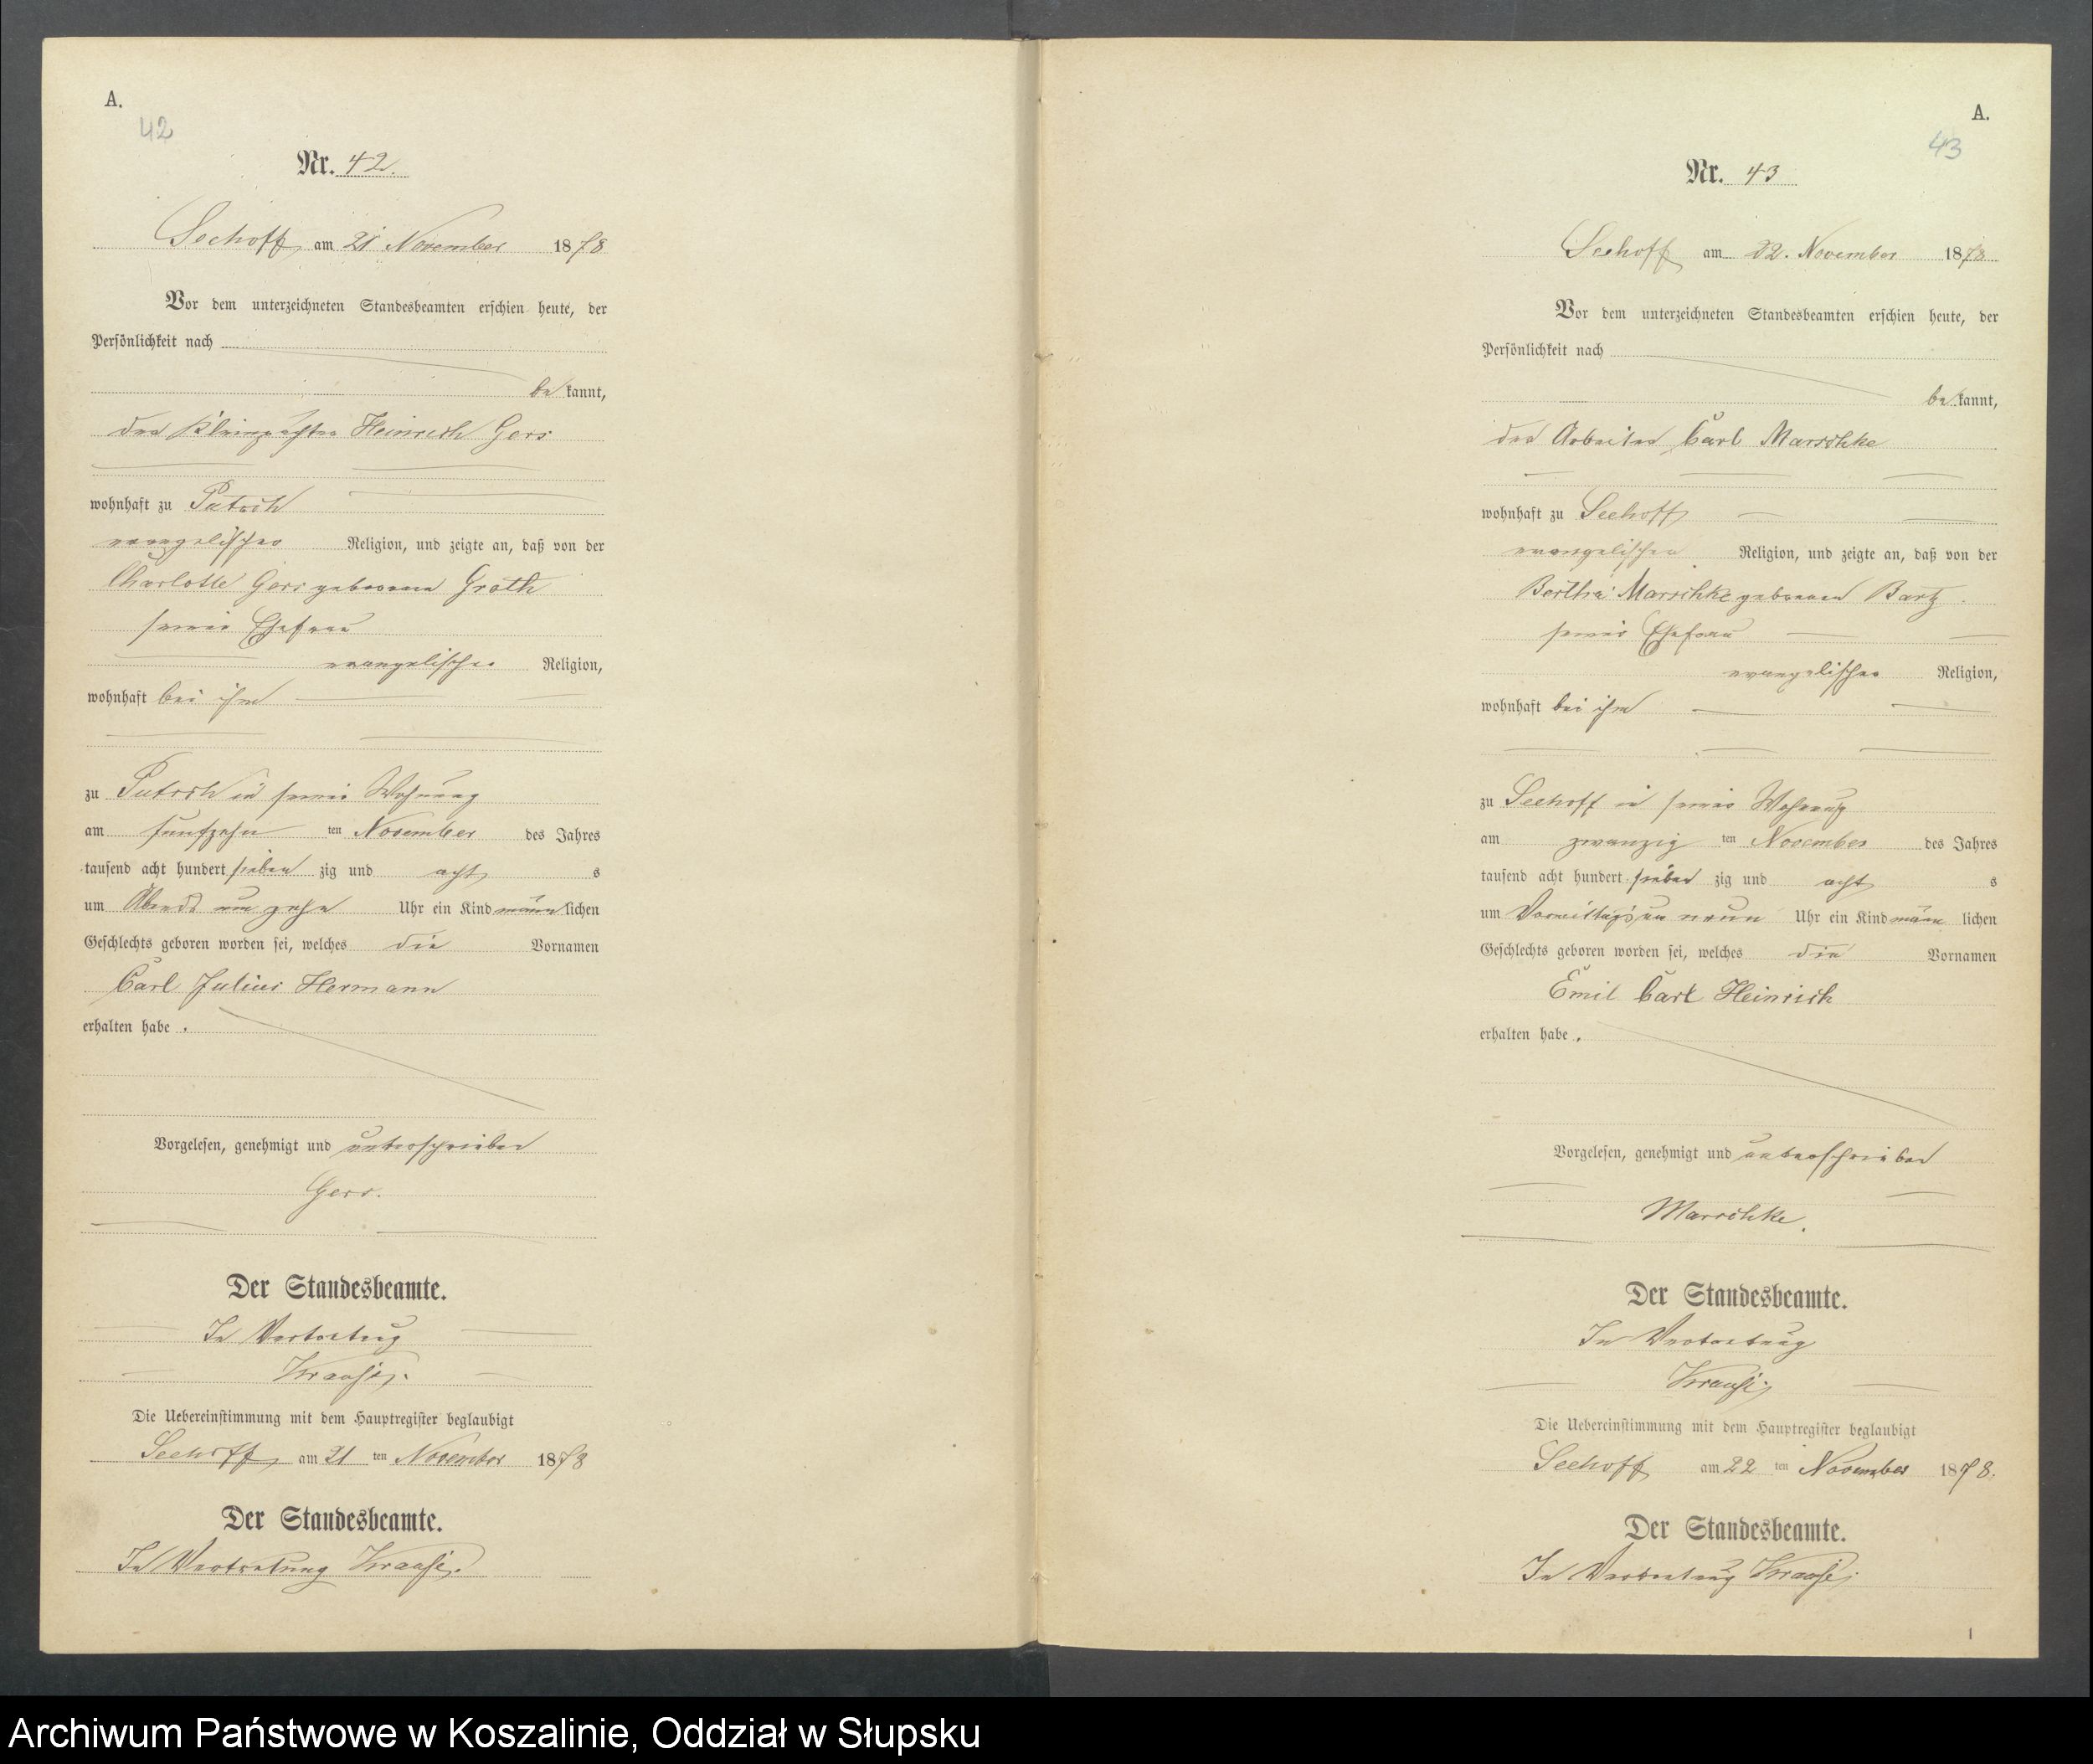 A.
42
Nr. 42.
Seehoff am 21 November 1878
Vor dem unterzeichneten Standesbeamten erschien heute, der
Persönlichkeit nach
be kannt,
der Kleinpächter Heinrich Gers
wohnhaft zu Putsch
evangelischer Religion, und zeigte an, daß von der
Charlotte Gers geborenen Groth
seiner Ehefrau
evangelischer Religion,
wohnhaft bei ihm
zu Putsch in seiner Wohnung
am fünfzehn ten November des Jahres
tausend acht hundert sieben zig und acht s
um Abends um zehn Uhr ein Kind männ lichen
Geschlechts geboren worden sei, welches die Vornamen
Carl Julius Hermann
erhalten habe .
Vorgelesen, genehmigt und unterschrieben
Gers.
Der Standesbeamte.
In Vertretung
Krause.
Die Uebereinstimmung mit dem Hauptregister beglaubigt
Seehoff am 21 ten November 1878
Der Standesbeamte.
In Vertretung Krause.
A.
43
Nr. 43
Seehoff am 22. November 1878
Vor dem unterzeichneten Standesbeamten erschien heute, der
Persönlichkeit nach
be kannt,
der Arbeiter Carl Marschke
wohnhaft zu Seehoff
evangelischer Religion, und zeigte an, daß von der
Bertha Marschke geborenen Bartz
seiner Ehefrau
evangelischer Religion,
wohnhaft bei ihm
zu Seehoff in seiner Wohnung
am zwanzig ten November des Jahres
tausend acht hundert sieben zig und acht s
um Vormittags um neun Uhr ein Kind männ lichen
Geschlechts geboren worden sei, welches die Vornamen
Emil Carl Heinrich
erhalten habe .
Vorgelesen, genehmigt und unterschrieben
Marschke.
Der Standesbeamte.
In Vertretung
Krause.
Die Uebereinstimmung mit dem Hauptregister beglaubigt
Seehoff am 22 ten November 1878.
Der Standesbeamte.
In Vertretung Krause.
Archiwum Państwowe w Koszalinie, Oddział w Słupsku